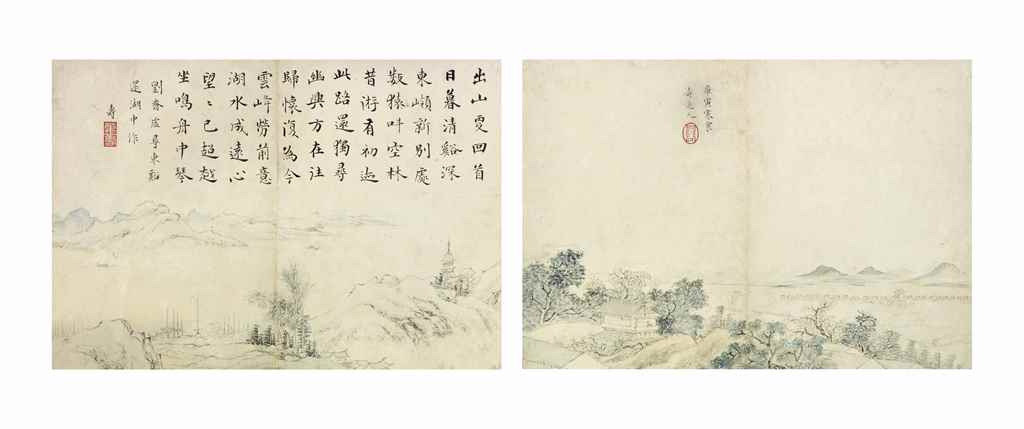 庚寅寒
壽
出山更回首
日暮清谿深
東嶺新別處
數猿叫空林
昔游有初迹
此路還獨尋
幽興方在往
歸懷復為今
雲峰勞前意
湖水成遠心
望〻已超越
坐鳴舟中琴
劉眘虛尋東谿
還湖中作
壽